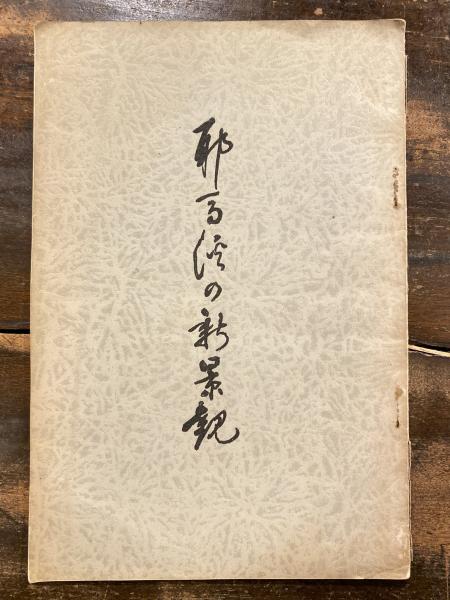 耶馬渓の新景観